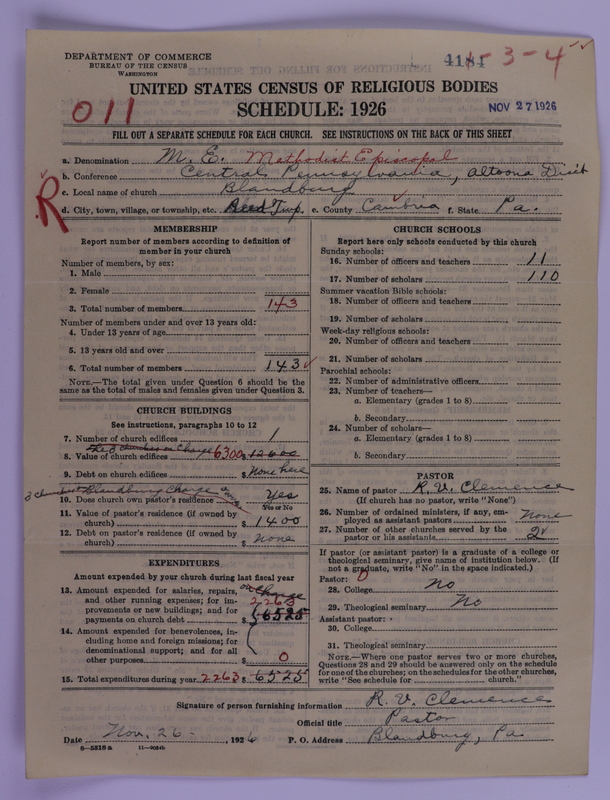 DEPARTMENT OF COMMERCE
BUREAU OF THE CENSUS
WASHINGTON
4184 3-4
UNITED STATES CENSUS OF RELIGIOUS BODIES
SCHEDULE: 1926
NOV 27 1926
011
FILL OUT A SEPARATE SCHEDULE FOR EACH CHURCH. SEE INSTRUCTIONS ON THE BACK OF THIS SHEET
a. Denomination M. E. Methodist Episcopal
b. Conference Central Pennsylvania, Altoona Dist
c. Local name of church Blandburg
R
d. City, town, village, or township, etc. Reed Twp. e. County Cambria f. State Pa.
MEMBERSHIP
Report number of members according to definition of
member in your church
Number of members, by sex:
1. Male
2. Female
3. Total number of members 143
Number of members under and over 13 years old:
4. Under 13 years of age
5. 13 years old and over
6. Total number of members 143
NOTE.—The total given under Question 6 should be the
same as the total of males and females given under Question 3.
CHURCH BUILDINGS
See instructions, paragraphs 10 to 12
7. Number of church edifices 1
churches on Charge
8. Value of church edifices 6300 $ 12600
9. Debt on church edifices $ None here
3 churches Blandburg Charge owns
10. Does church own pastor's residence Yes
Yes or No
11. Value of pastor's residence (if owned by
church) $ 1400
12. Debt on pastor's residence (if owned by
church) $ None
EXPENDITURES
Amount expended by your church during last fiscal year
on Charge
13. Amount expended for salaries, repairs,
and other running expenses; for im-
provements or new buildings; and for
payments on church debt $ 2263 6525
14. Amount expended for benevolences, in-
cluding home and foreign missions; for
denominational support; and for all
other purposes $ 0
15. Total expenditures during year 2263 $ 6525
CHURCH SCHOOLS
Report here only schools conducted by this church
Sunday schools:
16. Number of officers and teachers 11
17. Number of scholars 110
Summer vacation Bible schools:
18. Number of officers and teachers
19. Number of scholars
Week-day religious schools:
20. Number of officers and teachers
21. Number of scholars
Parochial schools:
22. Number of administrative officers
23. Number of teachers—
a. Elementary (grades 1 to 8)
b. Secondary
24. Number of scholars—
a. Elementary (grades 1 to 8)
b. Secondary
PASTOR
25. Name of pastor R. V. Clemence
(If church has no pastor, write "None")
26. Number of ordained ministers, if any, em-
ployed as assistant pastors None
27. Number of other churches served by the
pastor or his assistants 2
If pastor (or assistant pastor) is a graduate of a college or
theological seminary, give name of institution below. (If
not a graduate, write "No" in the space indicated.)
Pastor: 0
28. College No
29. Theological seminary No
Assistant pastor:
30. College
31. Theological seminary
NOTE.—Where one pastor serves two or more churches,
Questions 28 and 29 should be answered only on the schedule
for one of the churches; on the schedules for the other churches,
write "See schedule for church."
Signature of person furnishing information R. V. Clemence
Official title Pastor
Date Nov. 26 , 1926 P. O. Address Blandburg, Pa
8—5518a 11—9054b